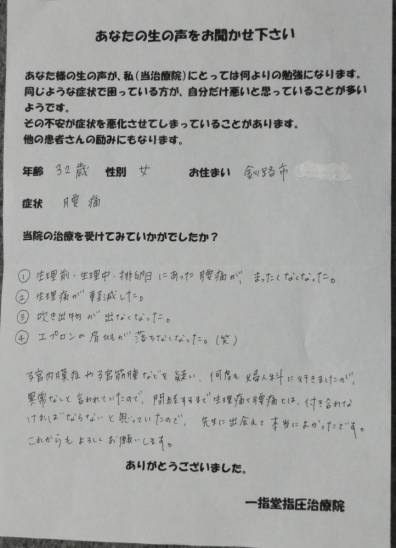 あなたの生の声をお聞かせ下さい
あなた様の生の声が、私(当治療院)にとっては何よりの勉強になります。
同じような症状で困っている方が、自分だけ悪いと思っていることが多い
ようです。
その不安が症状を悪化させてしまっていることがあります。
他の患者さんの励みにもなります。
年齢 32歳 性別 女 お住まい 釧路市
症状 腰痛
当院の治療を受けてみていかがでしたか?
① 生理前・生理中・排卵日にあった腰痛が、まったくなくなった。
② 生理痛が軽減した。
③ 吹き出物が出なくなった。
④ エプロンの肩ひもが落ちなくなった。(笑)
子宮内膜症や子宮筋腫などを疑い、何度も婦人科に行きましたが、
異常なしと言われていたので、閉経するまで生理痛と腰痛とは、付き合わな
ければならないと思っていたので、先生に出会えて本当によかったです。
これからもよろしくお願いします。
ありがとうございました。
一指堂指圧治療院